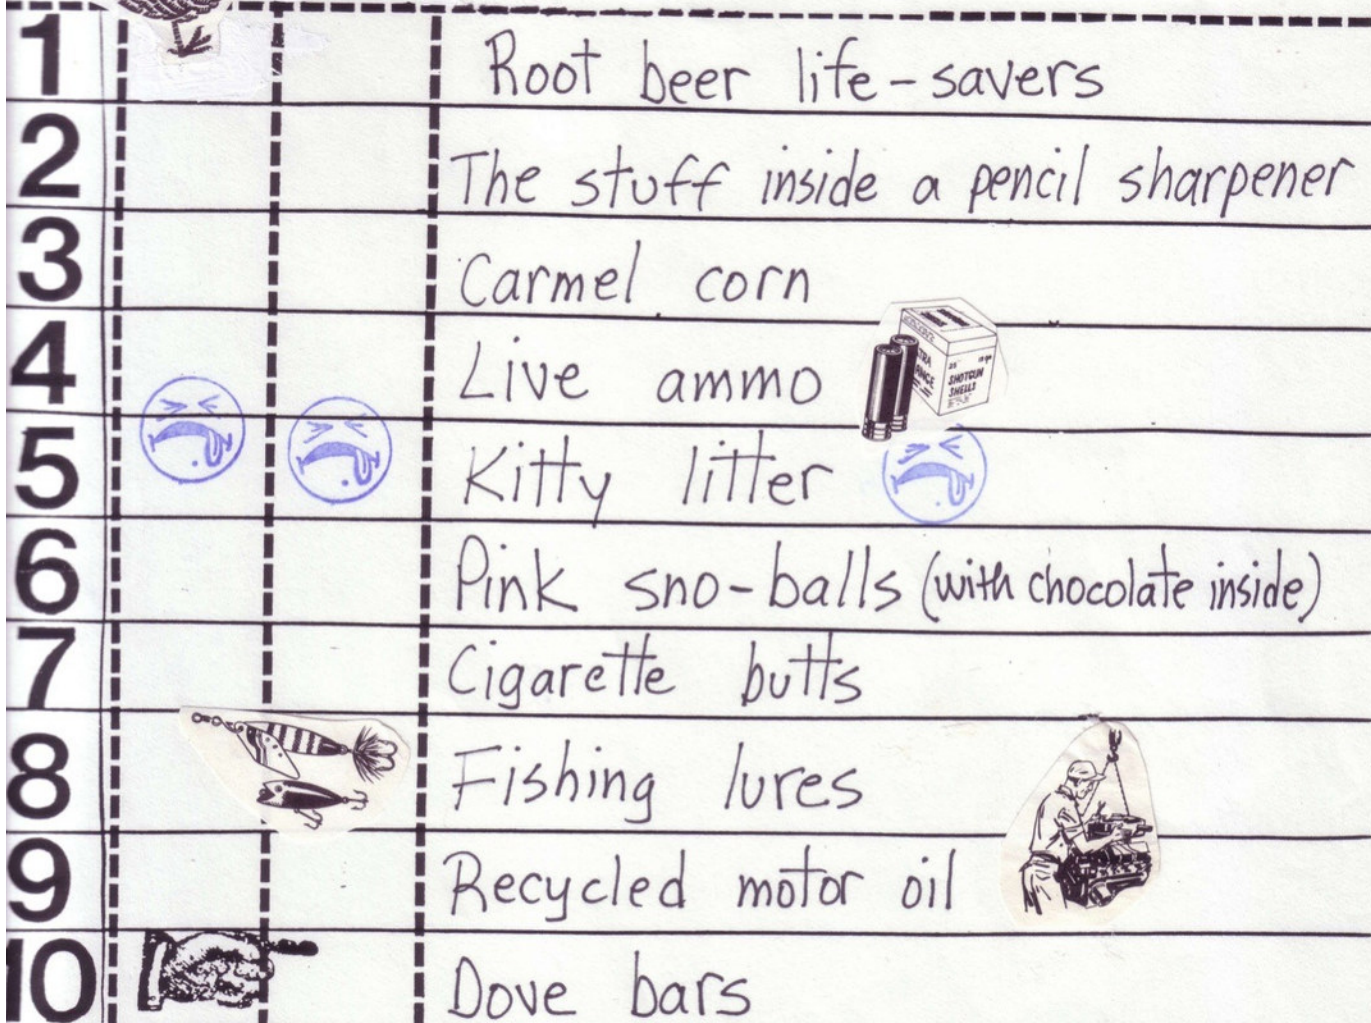 1 Root beer life-savers
2 The stuff inside a pencil sharpener
3 Carmel corn
4 Live ammo
SHOTGUN
SHELLS
5 Kitty litter
6 Pink sno-balls (with chocolate inside)
7 Cigarette butts
8 Fishing lures
9 Recycled motor oil
10 Dove bars